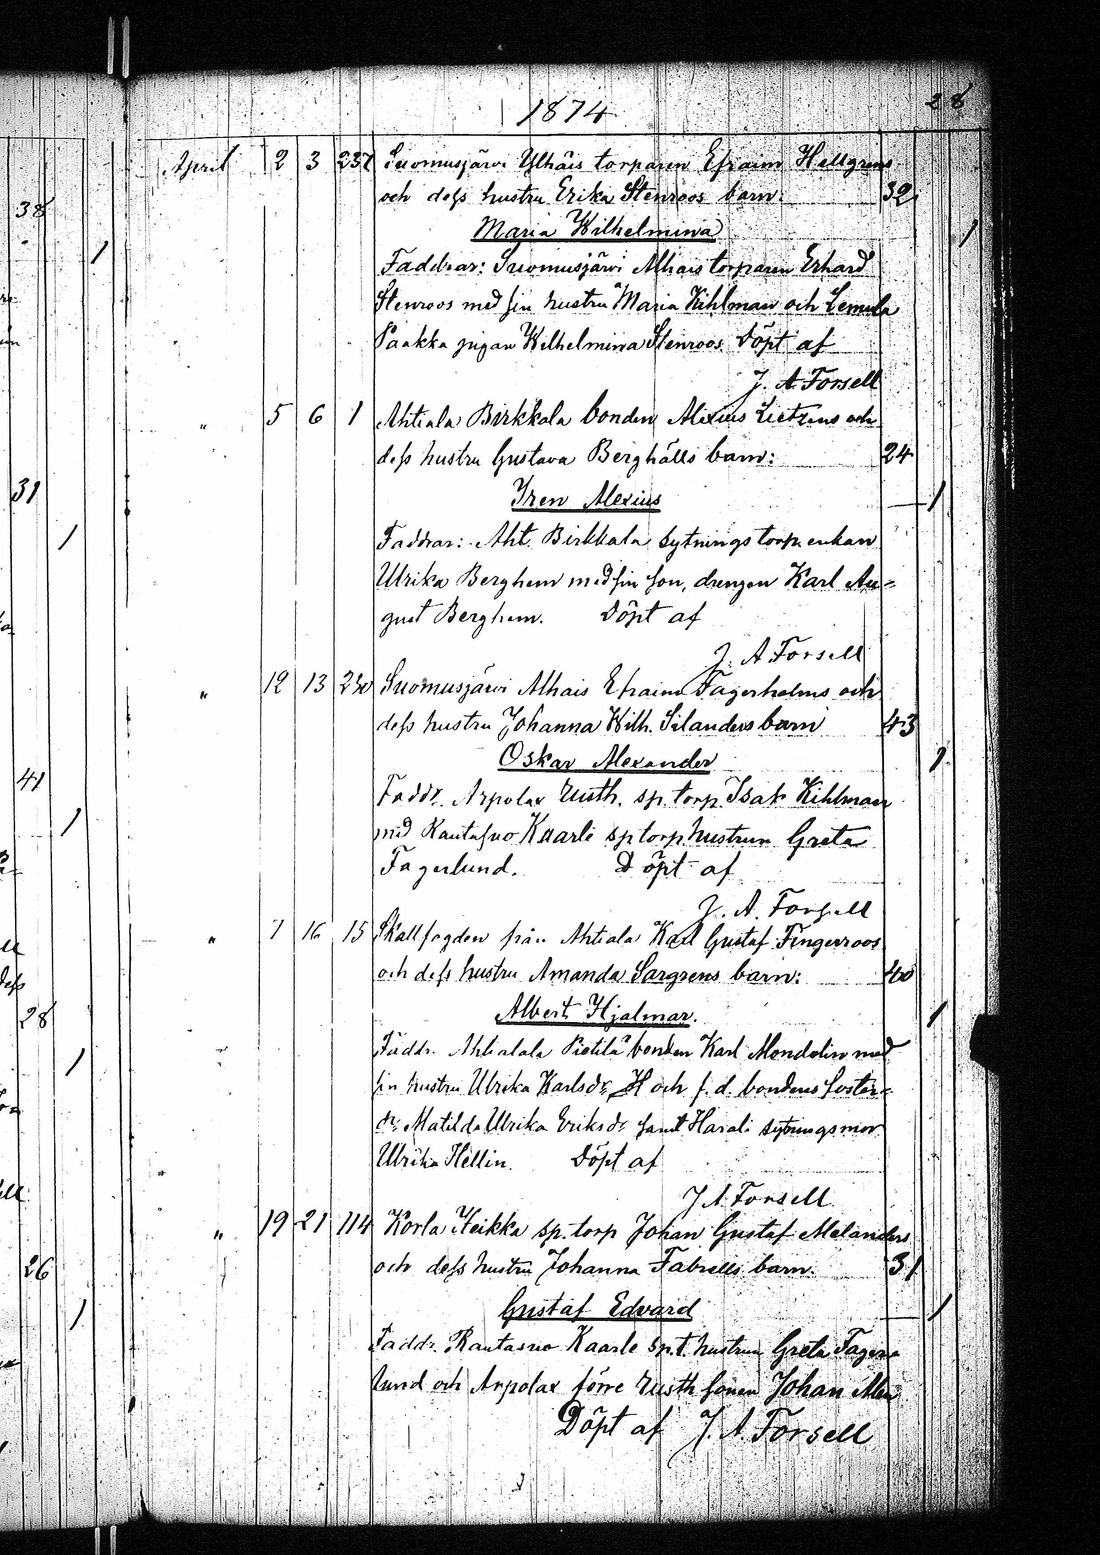 28
1874
April 2 3 237 Suomusjärvi Ylhäis torparen Efraim Hellgrens
och dess hustru Erika Stenroos barn: 32
Maria Wilhelmina 1
Faddrar: Suomusjärvi Alhais torparen Erhard
Stenroos med sin hustru Maria Kihlman och Lemula
Paakka pigan Wilhelmina Stenroos. Döpt af
J. A. Forsell
" 5 6 1 Ahtiala Birkkala bonden Alexius Lietzens och
dess hustru Gustava Berghälls barn: 24
Iren Alexius 1
Faddrar: Aht. Birkkala sytnings torp. enkan
Ulrika Berghem med sin son, drengen Karl Au=
gust Berghem. Döpt af
J. A. Forsell
" 12 13 230 Suomusjärvi Alhais Efraim Fagerholms och
dess hustru Johanna Wilh. Silanders barn 43
Oskar Alexander 1
Faddr. Arpolax rusth. sp. torp. Isak Kihlman
med Rautasuo Kaarle sp torp hustrun Greta
Fagerlund. Döpt af
J. A. Forsell
" 7 16 15 Skallfogden från Ahtiala Karl Gustaf Fingerroos
och dess hustru Amanda Sargrens barn: 40
Albert Hjalmar. 1
Faddr. Ahtialala Pietilä bonden Karl Mondolin med
sin hustru Ulrika Karlsdr H och f. d. bondens foster=
dr. Matilda Ulrika Eriksdr samt Harali sytningsmor
Ulrika Hellin. Döpt af
J A Forsell
" 19 21 114 Korla Heikka sp. torp Johan Gustaf Melanders
och dess hustru Johanna Fabrells barn. 31
Gustaf Edvard 1
Faddr. Rautasuo Kaarle sp.t. hustrun Greta Fager=
lund och Arpolax förre rusth sonen Johan Alen
Döpt af J. A. Forsell
38
1
31
1
41
1
28
1
26
1